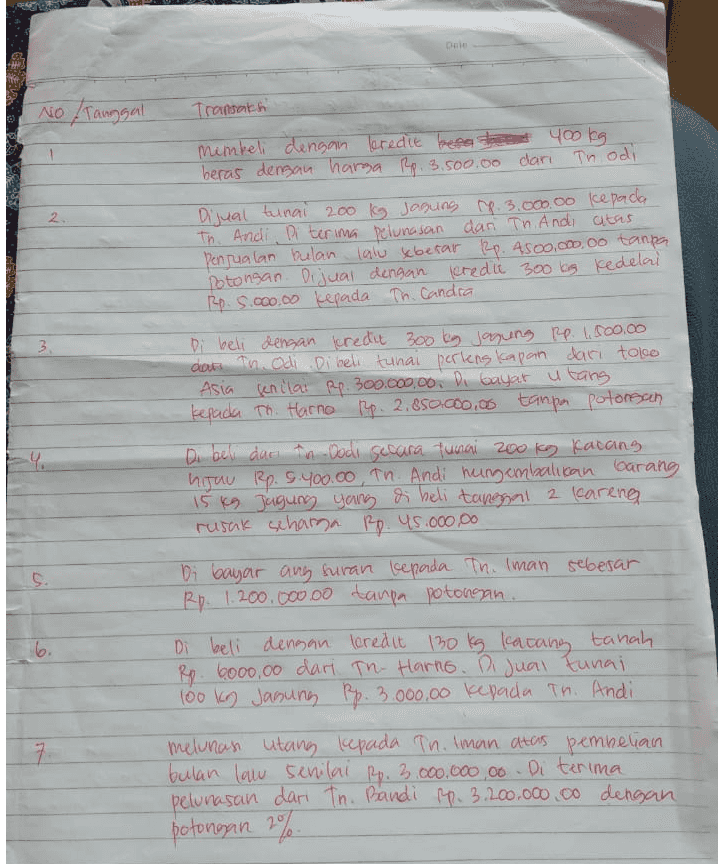 Date
NO / Tanggal Transaksi
1 Membeli dengan kredit 400 kg
beras dengan harga Rp. 3.500,00 dari Tn Odi
2. Dijual tunai 200 kg Jagung Rp. 3.000,00 kepada
Tn. Andi. Di terima pelunasan dari Tn. Andi atas
Penjualan bulan lalu sebesar Rp. 4500.000,00 tanpa
potongan. Dijual dengan kredit 300 kg kedelai
Rp. 5.000,00 kepada Tn. Candra
3. Di beli dengan kredit 300 kg jagung Rp. 1.500,00
dari Tn. Odi. Di beli tunai perlengkapan dari toko
Asia senilai Rp. 300.000,00. Di bayar utang
kepada Tn. Harno Rp. 2.850.000,00 tanpa potongan
4. Di beli dari Tn. Dodi secara tunai 200 kg kacang
hijau Rp. 5.400.00, Tn. Andi mengembalikan barang
15 kg Jagung yang di beli tanggal 2 karena
rusak seharga Rp. 45.000,00
5. Di bayar angsuran kepada Tn. Iman sebesar
Rp. 1.200.000.00 tanpa potongan.
6. Di beli dengan kredit 130 kg kacang tanah
Rp. 6000,00 dari Tn. Harno. Di jual tunai
100 kg Jagung Rp. 3.000,00 kepada Tn. Andi
7. Melunasi utang kepada Tn. Iman atas pembelian
bulan lalu senilai Rp. 3.000.000,00. Di terima
pelunasan dari Tn. Bandi Rp. 3.200.000,00 dengan
potongan 2%.